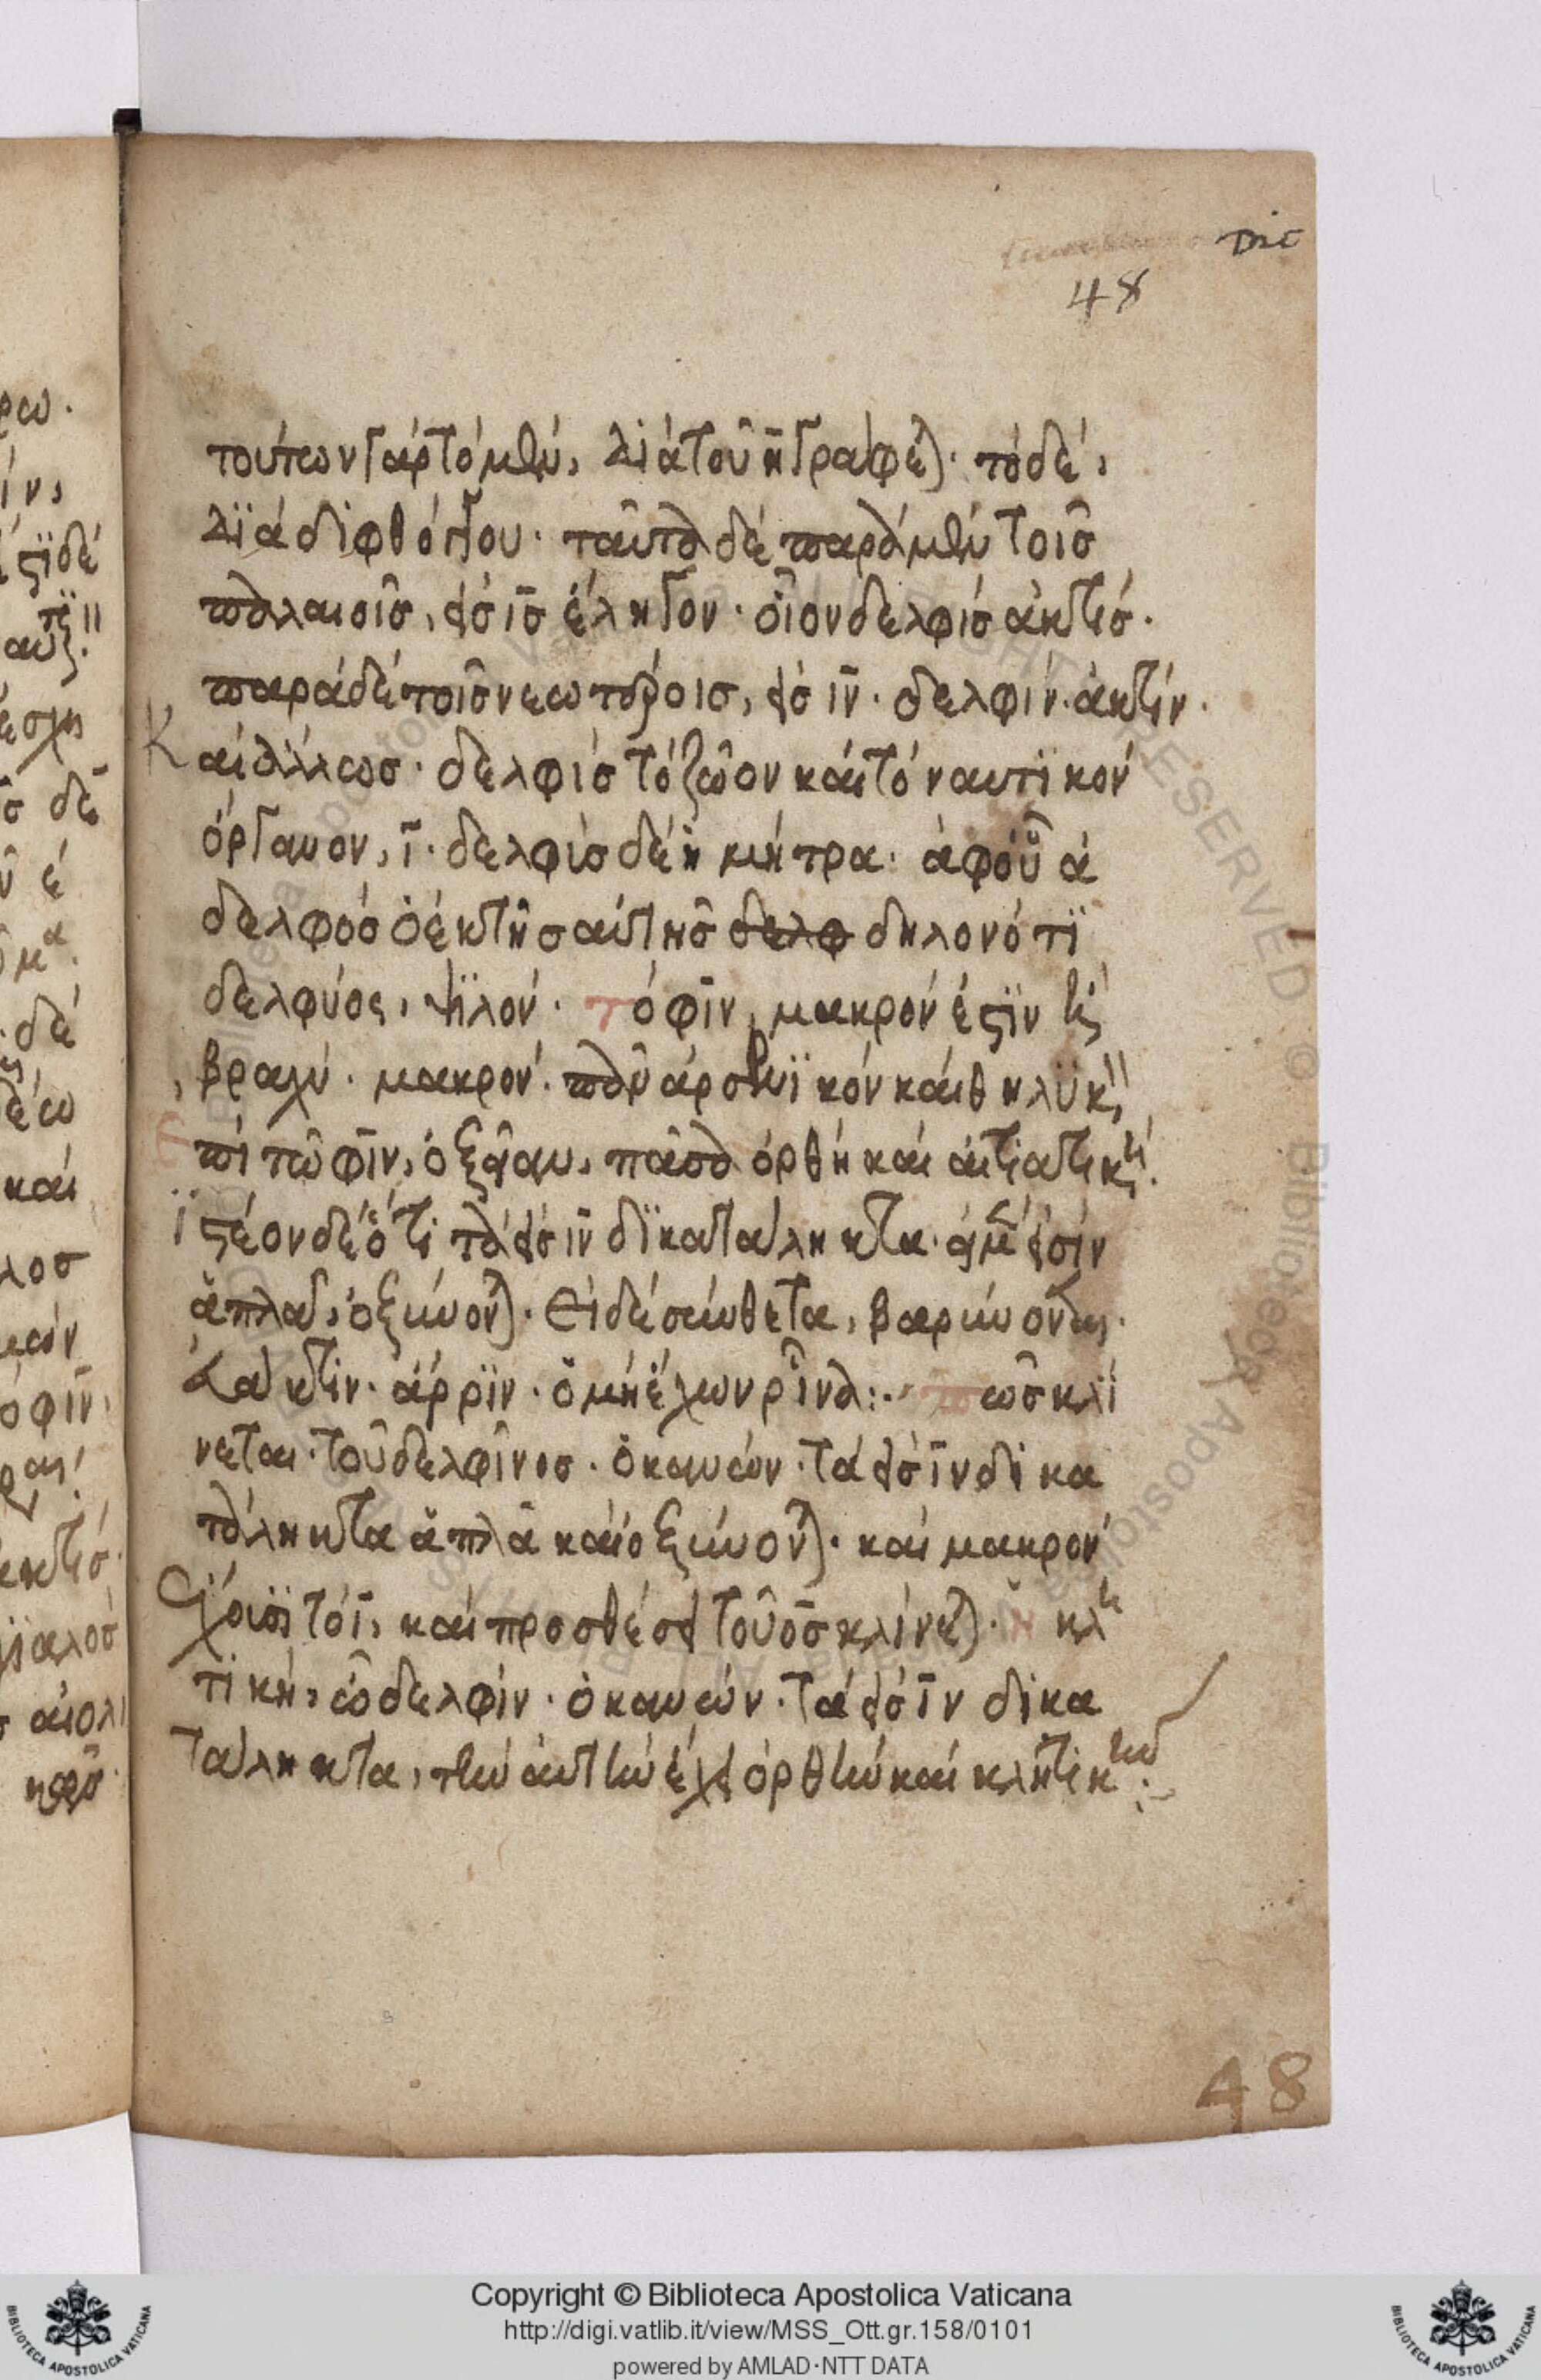 48
τούτων γὰρ τὸ μὲν, διὰ τοῦ η γράφε). τὸ δὲ,
διὰ διφθόγγου. ταῦτα δὲ παρὰ μὲν τοῖς
παλαιοῖς, εἰς ῑς ἔληγον. οἷον δελφὶς ἀκτίς.
παρὰ δὲ τοῖς νεωτέροις, εἰς ῑν. δελφίν. ἀκτίν.
Καὶ ἄλλως. δελφὶς τὸ ζῶον καὶ τὸ ναυτικὸν
ὄργανον, ῑ. δελφὺς δὲ ἡ μήτρα. ἀφ' οὗ ἀ
δελφὸς ὁ ἐκ τῆς αὐτῆς δελφ δηλονότι
δελφύος, ψιλόν. τὸ φιν, μακρόν ἐστιν ἢ
βραχύ. μακρόν. πᾶν ἀρσενικὸν καὶ θηλυκ
τί τὸ φιν, ὀξεῖαν, πᾶσα ὀρθὴ καὶ αἰτιατικὴ.
ϊστέον δὲ ὅτι τὰ εἰς ῑν δικατάληκτα. εἰ μέν εἰσιν
ἁπλᾶ, ὀξύνον). Εἰ δὲ σύνθετα, βαρύνονται.
ἄρριν. ὁ μὴ ἔχων ῥῖνα:. πῶς κλί
νεται. τοῦ δελφῖνος. ὁ κανών. τὰ εἰς ῑν δικα
τάληκτα ἁπλᾶ καὶ ὀξύνον). καὶ μακρὸν
ἔχουσι τὸ ῑ, καὶ προσθέσει τοῦ ος κλίνε). ἡ κλη
τικὴ, ὦ δελφίν. ὁ κανών. τὰ εἰς ῑν δικα
τάληκτα, τὴν αὐτὴν ἔχει ὀρθὴν καὶ κλητικὴν:
48
Copyright © Biblioteca Apostolica Vaticana
http://digi.vatlib.it/view/MSS_Ott.gr.158/0101
powered by AMLAD·NTT DATA
BIBLIOTECA APOSTOLICA VATICANA
BIBLIOTECA APOSTOLICA VATICANA